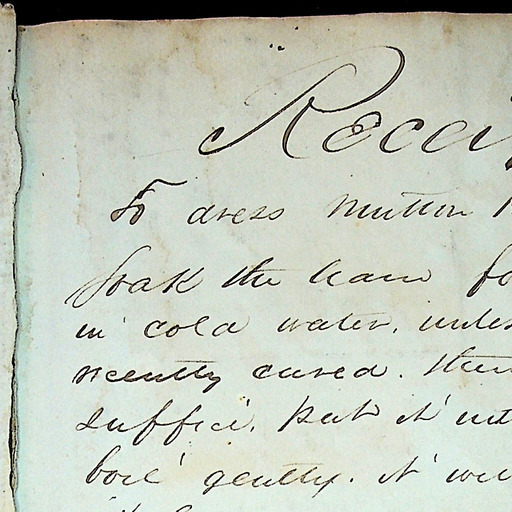 Recei
To dress Mutton
Soak the ham fo
in cold water, unles
recently cured. then
suffice, put it int
boil gently. it wil